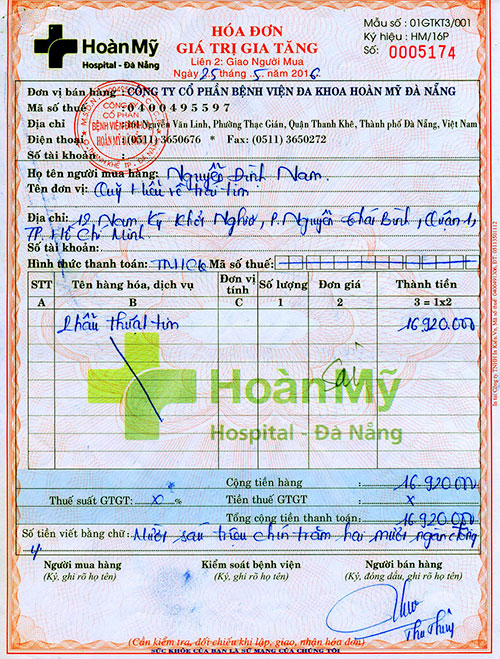 HoànMỹ
Hospital - Đà Nẵng
HÓA ĐƠN
GIÁ TRỊ GIA TĂNG
Liên 2: Giao Người Mua
Ngày 25 tháng 5 năm 2016
Mẫu số : 01GTKT3/001
Ký hiệu : HM/16P
Số: 0005174
Đơn vị bán hàng : CÔNG TY CỔ PHẦN BỆNH VIỆN ĐA KHOA HOÀN MỸ ĐÀ NẴNG
Mã số thuế : 0400495597
Địa chỉ : 161 Nguyễn Văn Linh, Phường Thạc Gián, Quận Thanh Khê, Thành phố Đà Nẵng, Việt Nam
Điện thoại : (0511) 3650676 * Fax: (0511) 3650272
Số tài khoản :
Họ tên người mua hàng: Nguyễn Đình Nam.
Tên đơn vị: Quỹ Hiểu về trái tim
Địa chỉ: 19 Nam Kỳ Khởi Nghĩa, P. Nguyễn Thái Bình, Quận 1,
TP. Hồ Chí Minh.
Số tài khoản:
Hình thức thanh toán: TM/CK Mã số thuế:
STT Tên hàng hóa, dịch vụ Đơn vị tính Số lượng Đơn giá Thành tiền
A B C 1 2 3 = 1x2
Phẫu thuật tim 16.920.000
HoànMỹ
Hospital - Đà Nẵng
Cộng tiền hàng : 16.920.000
Thuế suất GTGT: x % Tiền thuế GTGT : x
Tổng cộng tiền thanh toán: 16.920.000
Số tiền viết bằng chữ: Mười sáu triệu chín trăm hai mươi ngàn đồng
Người mua hàng Kiểm soát bệnh viện Người bán hàng
(Ký, ghi rõ họ tên) (Ký, ghi rõ họ tên) (Ký, đóng dấu, ghi rõ họ tên)
Thu Thủy
(Cần kiểm tra, đối chiếu khi lập, giao, nhận hóa đơn)
SỨC KHỎE CỦA BẠN LÀ SỨ MẠNG CỦA CHÚNG TÔI